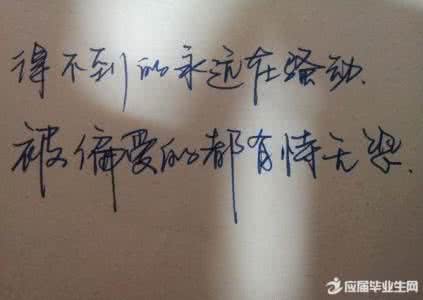 得不到的永远在骚动.
被偏爱的都有恃无恐.
应届毕业生网